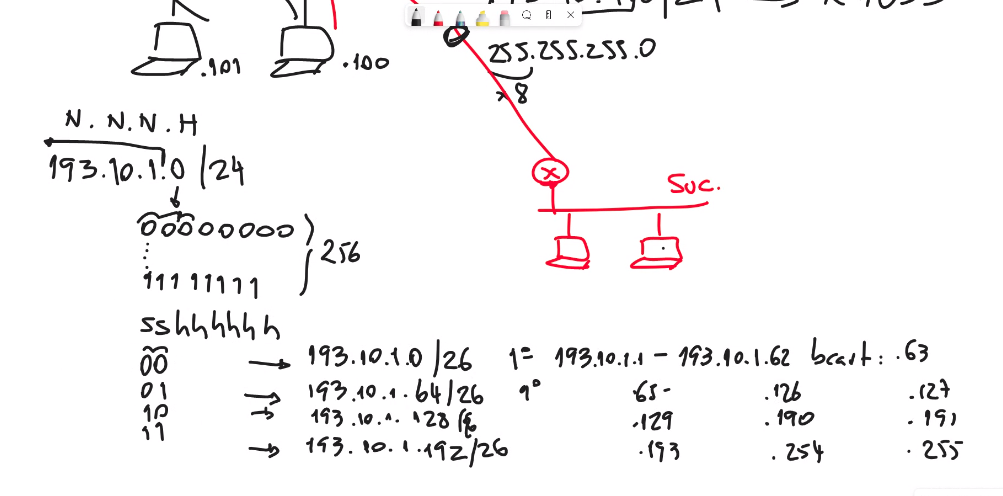 .101
.100
255.255.255.0
x8
N.N.N.H
193.10.1.0 /24
Suc.
00000000
256
11111111
sshhhhhh
00 → 193.10.1.0 /26 1º 193.10.1.1 - 193.10.1.62 bcast: .63
01 → 193.10.1.64/26 1º .65 - .126 .127
10 → 193.10.1.128 .129 .190 .191
11 → 193.10.1.192/26 .193 .254 .255